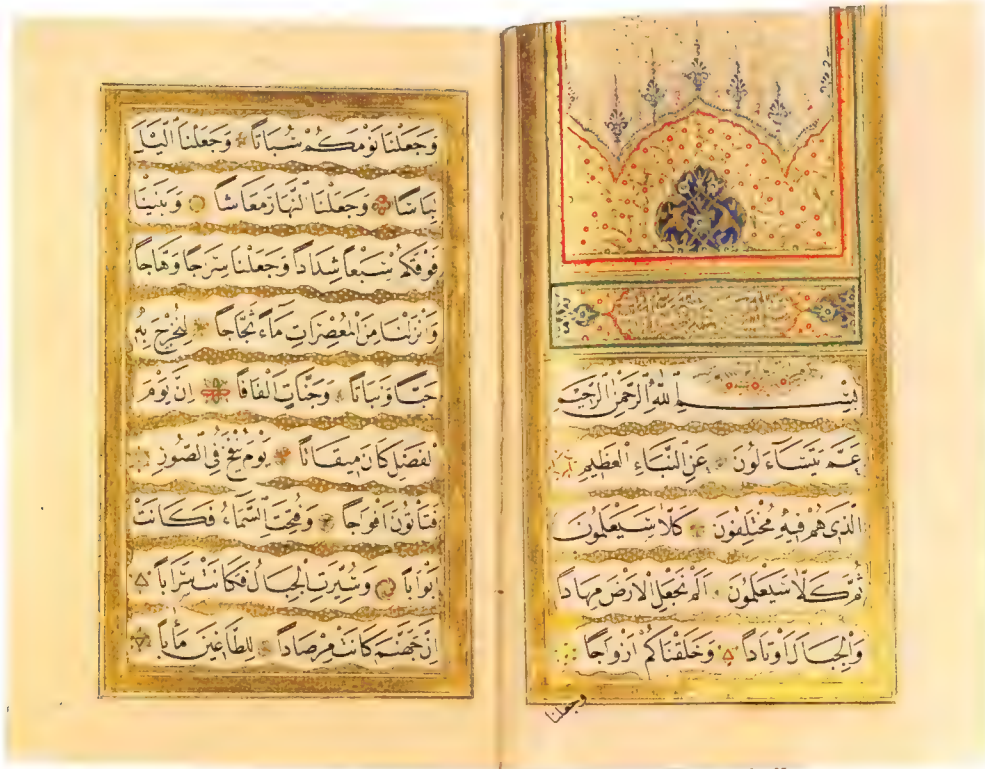 بِسْمِ اللّٰهِ الرَّحْمٰنِ الرَّحِيْمِ
عَمَّ يَتَسَآءَلُونَ عَنِ النَّبَاءِ الْعَظِيْمِ
اَلَّذِى هُمْ فِيْهِ مُخْتَلِفُونَ كَلَّا سَيَعْلَمُونَ
ثُمَّ كَلَّا سَيَعْلَمُونَ اَلَمْ نَجْعَلِ الْاَرْضَ مِهَادًا
وَالْجِبَالَ اَوْتَادًا وَخَلَقْنَاكُمْ اَزْوَاجًا
وجعلنا
وَجَعَلْنَا نَوْمَكُمْ سُبَاتًا وَجَعَلْنَا الَّيْلَ
لِبَاسًا وَجَعَلْنَا النَّهَارَ مَعَاشًا وَبَنَيْنَا
فَوْقَكُمْ سَبْعًا شِدَادًا وَجَعَلْنَا سِرَاجًا وَهَّاجًا
وَاَنْزَلْنَا مِنَ الْمُعْصِرَاتِ مَاءً ثَجَّاجًا لِنُخْرِجَ بِهِ
حَبًّا وَنَبَاتًا وَجَنَّاتٍ اَلْفَافًا اِنَّ يَوْمَ
الْفَصْلِ كَانَ مِيقَاتًا يَوْمَ يُنْفَخُ فِى الصُّورِ
فَتَأْتُونَ اَفْوَاجًا وَفُتِحَتِ السَّمَاءُ فَكَانَتْ
اَبْوَابًا وَسُيِّرَتِ الْجِبَالُ فَكَانَتْ سَرَابًا
اِنَّ جَهَنَّمَ كَانَتْ مِرْصَادًا لِلطَّاغِينَ مَأٰبًا